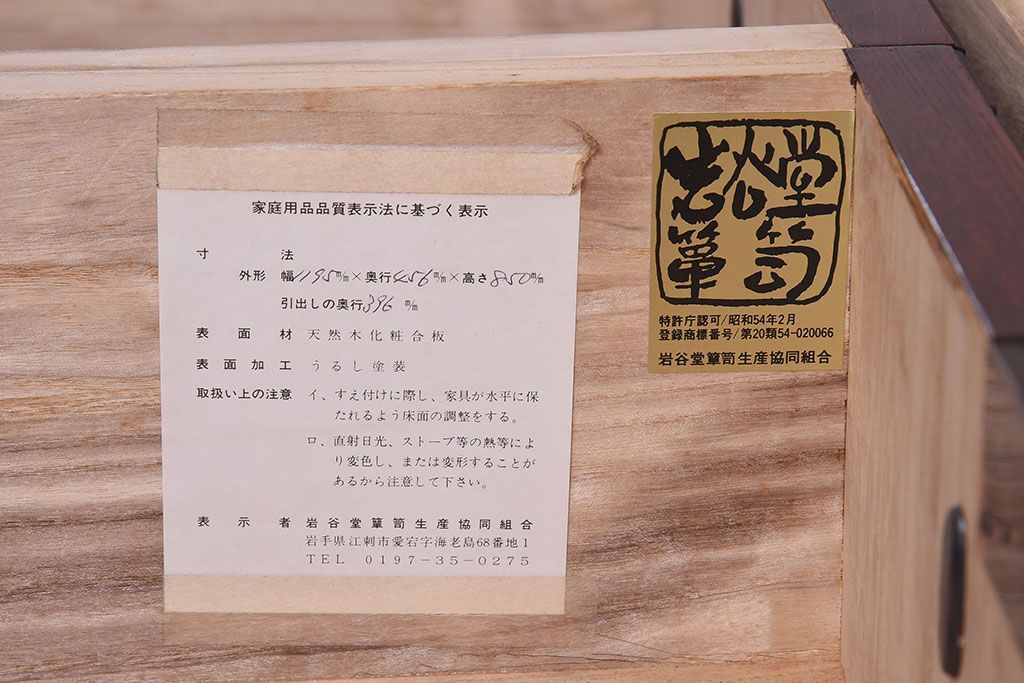 家庭用品品質表示法に基づく表示
寸法
外形 幅1195m/m×奥行456m/m×高さ850m/m
引出しの奥行396 m/m
表面材 天然木化粧合板
表面加工 うるし塗装
取扱い上の注意 イ、すえ付けに際し、家具が水平に保
たれるよう床面の調整をする。
ロ、直射日光、ストーブ等の熱等によ
り変色し、または変形することが
あるから注意して下さい。
表示者 岩谷堂簞笥生産協同組合
岩手県江刺市愛宕字海老島68番地1
TEL 0197-35-0275
岩谷堂簞笥
特許庁認可/昭和54年2月
登録商標番号/第20類54-020066
岩谷堂簞笥生産協同組合